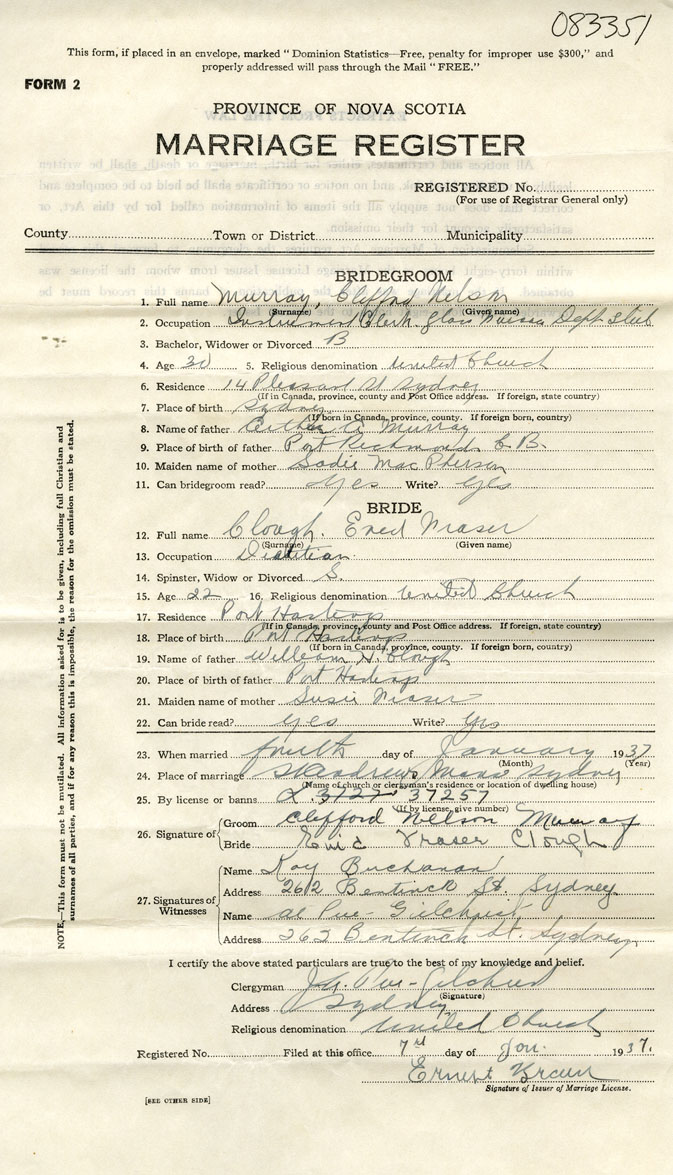 083351
This form, if placed in an envelope, marked "Dominion Statistics—Free, penalty for improper use $300," and
properly addressed will pass through the Mail "FREE."
FORM 2
PROVINCE OF NOVA SCOTIA
MARRIAGE REGISTER
REGISTERED No.
(For use of Registrar General only)
County Town or District Municipality
BRIDEGROOM
1. Full name Murray, Clifford Nelson
(Surname) (Given name)
2. Occupation Clerk Dept Steel
3. Bachelor, Widower or Divorced B
4. Age 30 5. Religious denomination United Church
6. Residence 14 Pleasant St Sydney
(If in Canada, province, county and Post Office address. If foreign, state country)
7. Place of birth Sydney
(If born in Canada, province, county. If foreign born, country)
8. Name of father A Murray
9. Place of birth of father Port Richmond C.B.
10. Maiden name of mother Sadie MacPherson
11. Can bridegroom read? Yes Write? Yes
BRIDE
12. Full name Clough. Enid Fraser
(Surname) (Given name)
13. Occupation Dietitian
14. Spinster, Widow or Divorced S.
15. Age 22 16. Religious denomination United Church
17. Residence Port Hastings
(If in Canada, province, county and Post Office address. If foreign, state country)
18. Place of birth Port Hastings
(If born in Canada, province, county. If foreign born, country)
19. Name of father William H. Clough
20. Place of birth of father Port Hastings
21. Maiden name of mother Susie Fraser
22. Can bride read? yes Write? Yes
23. When married fourth day of January 1937
(Month) (Year)
24. Place of marriage St Andrews Manse Sydney
(Name of church or clergyman's residence or location of dwelling house)
25. By license or banns 37257
(If by license, give number)
26. Signature of Groom Clifford Nelson Murray
Bride Enid Fraser Clough
27. Signatures of Witnesses
Name Buchanan
Address 262 Bentinck St. Sydney
Name Pue-Gilchrist
Address 262 Bentinck St. Sydney
I certify the above stated particulars are true to the best of my knowledge and belief.
Clergyman Pue-Gilchrist
(Signature)
Address Sydney
Religious denomination United Church
Registered No. Filed at this office 7 day of Jan. 1937.
Ernest
Signature of Issuer of Marriage License.
[SEE OTHER SIDE]
NOTE,—This form must not be mutilated. All information asked for is to be given, including full Christian and
surnames of all parties, and if for any reason this is impossible, the reason for the omission must be stated.